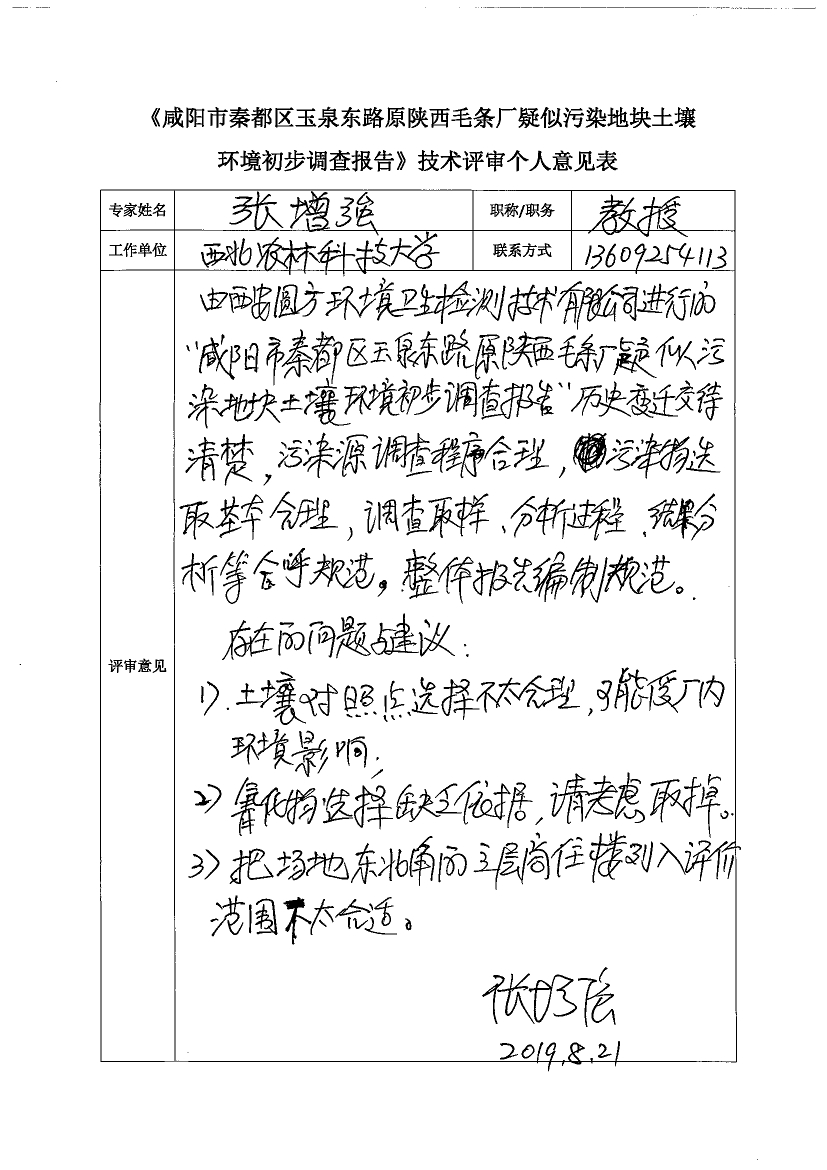 《咸阳市秦都区玉泉东路原陕西毛条厂疑似污染地块土壤
环境初步调查报告》技术评审个人意见表
专家姓名 张增强 职称/职务 教授
工作单位 西北农林科技大学 联系方式 13609254113
评审意见
由西安圆方环境卫生检测技术有限公司进行的
“咸阳市秦都区玉泉东路原陕西毛条厂疑似污
染地块土壤环境初步调查报告”历史变迁交待
清楚，污染源调查程序合理，污染物选
取基本合理，调查取样、分析过程、结果分
析等合乎规范。整体报告编制规范。
存在的问题与建议：
1）.土壤对照点选择不太合理，可能受厂内
环境影响；
2）氰化物选择缺乏依据，请考虑取掉。
3）把场地东北角的三层商住楼列入评价
范围不太合适。
张增强
2019.8.21